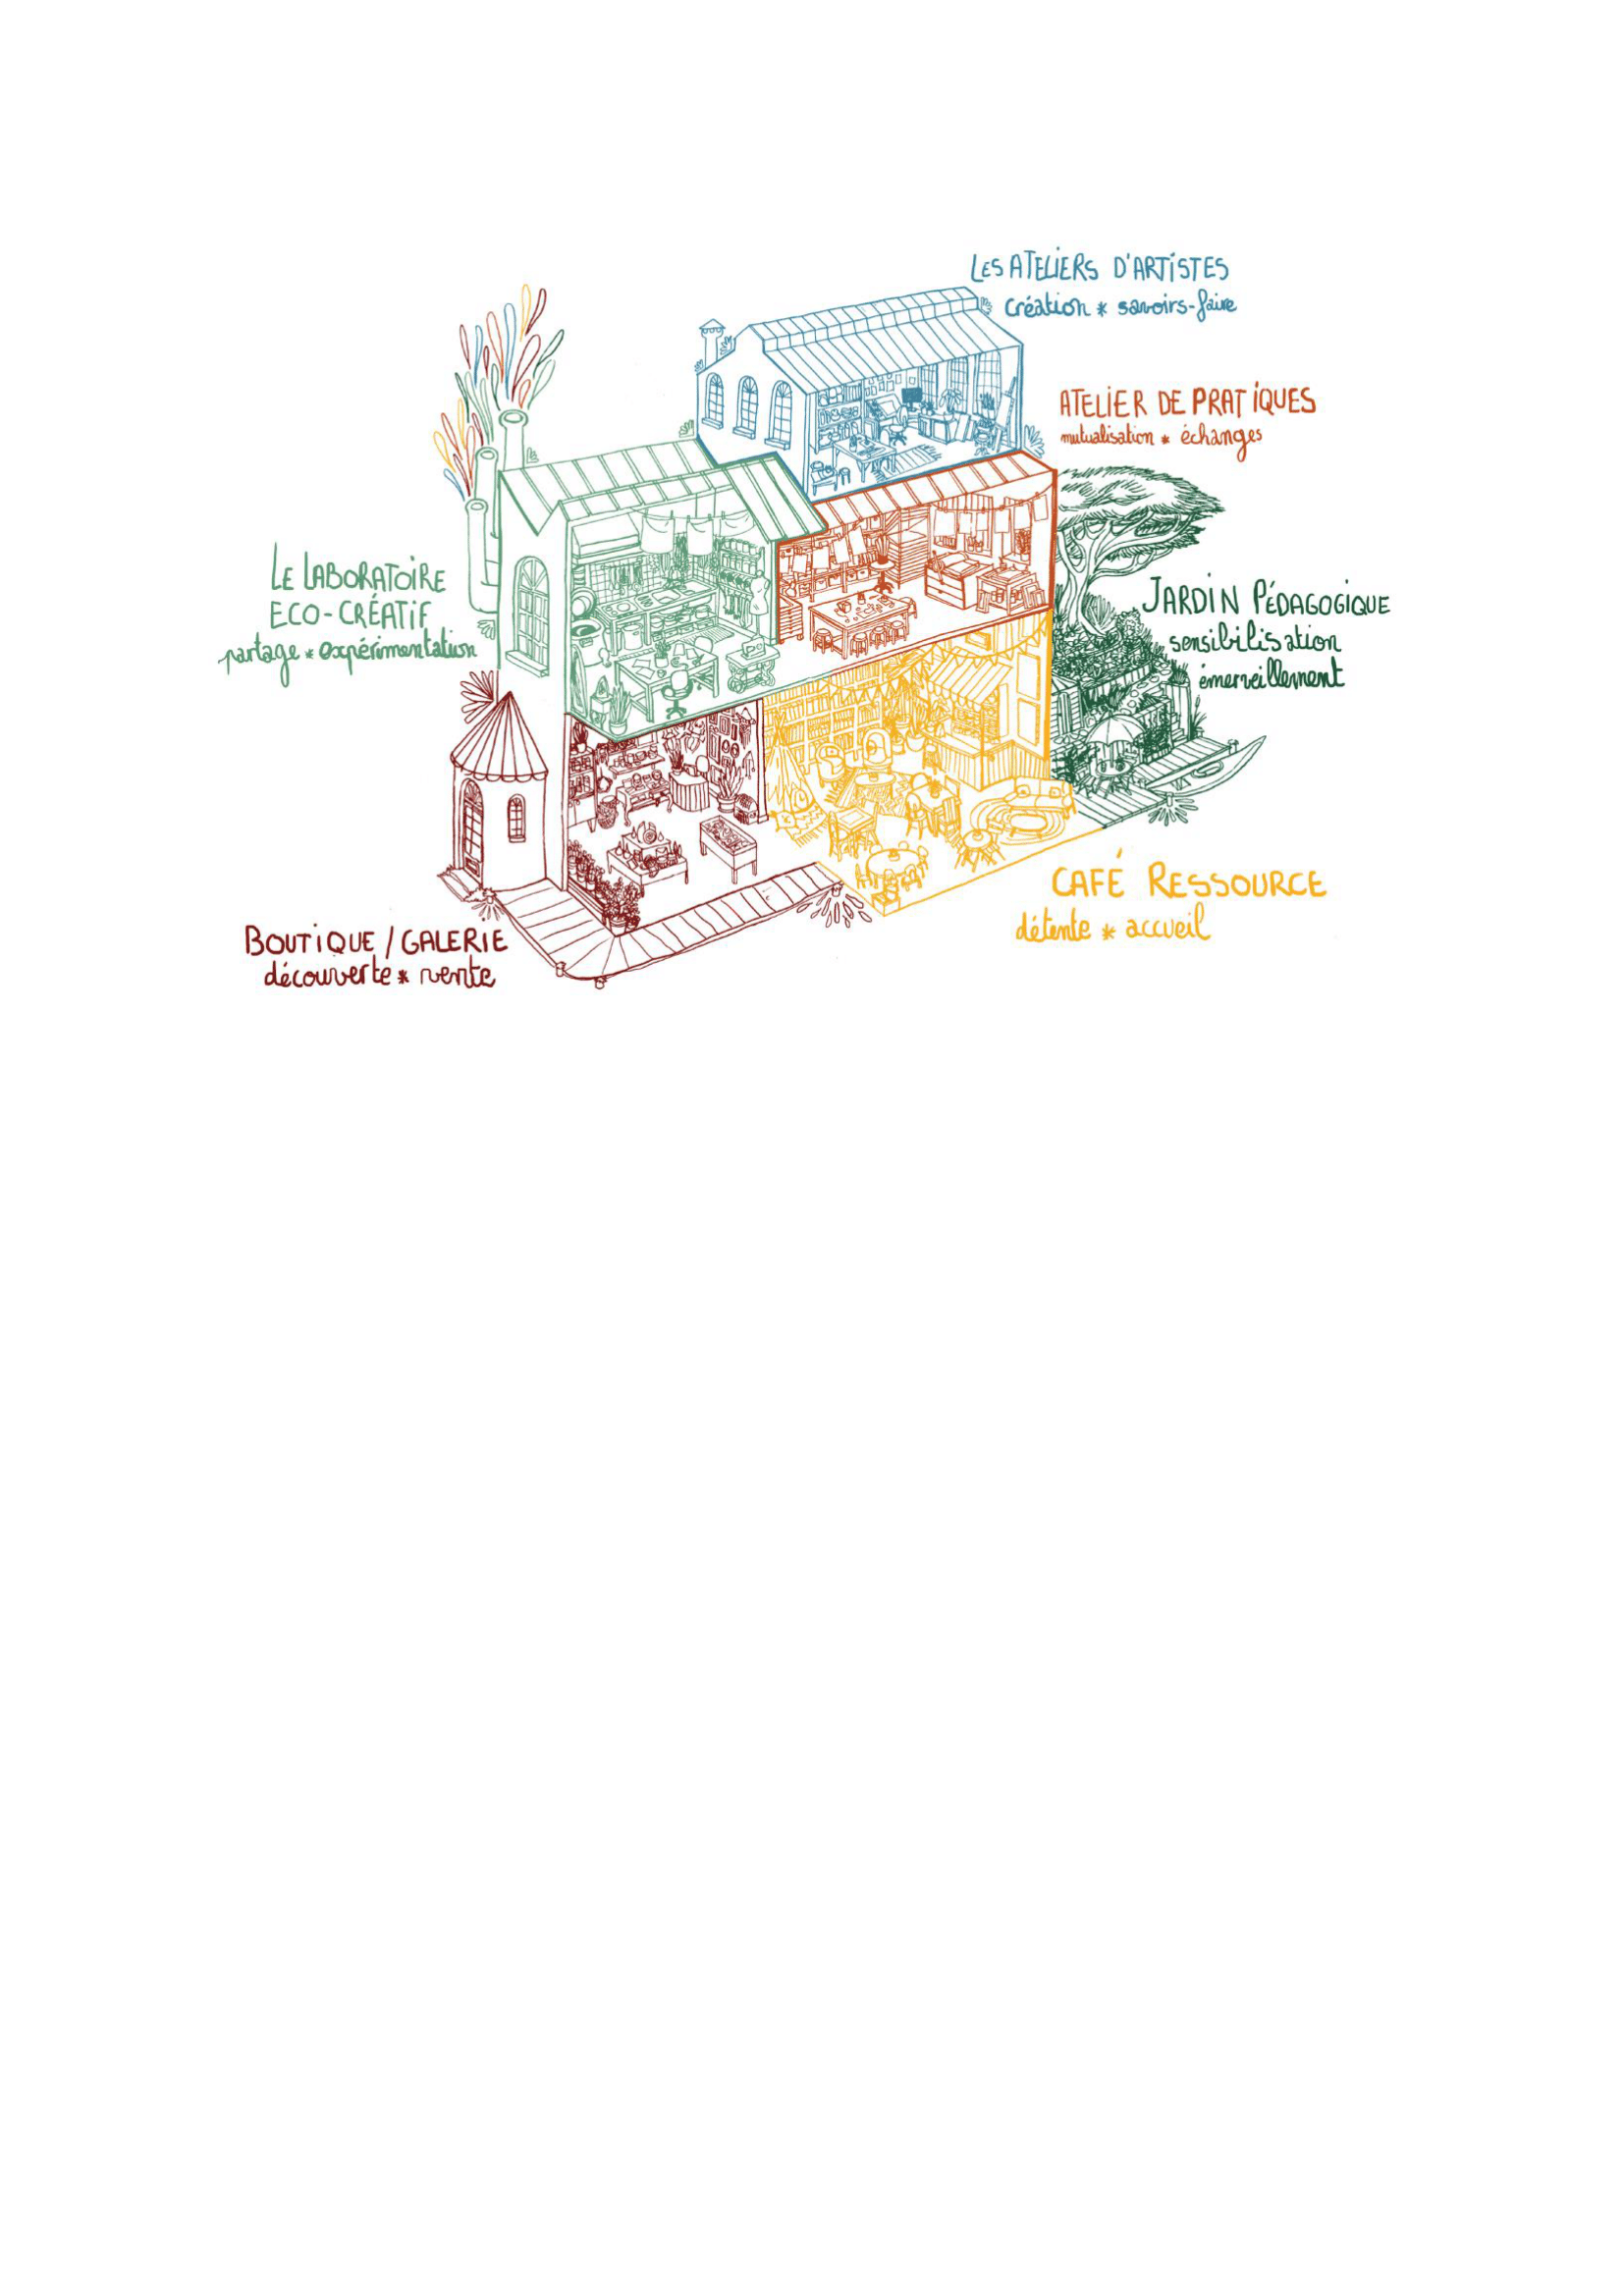 LES ATELIERS D'ARTISTES
création * savoirs-faire
ATELIER DE PRATIQUES
mutualisation * échanges
LE LABORATOIRE
ECO-CRÉATIF
partage * expérimentation
JARDIN PÉDAGOGIQUE
sensibilisation
émerveillement
CAFÉ RESSOURCE
détente * accueil
BOUTIQUE / GALERIE
découverte * vente